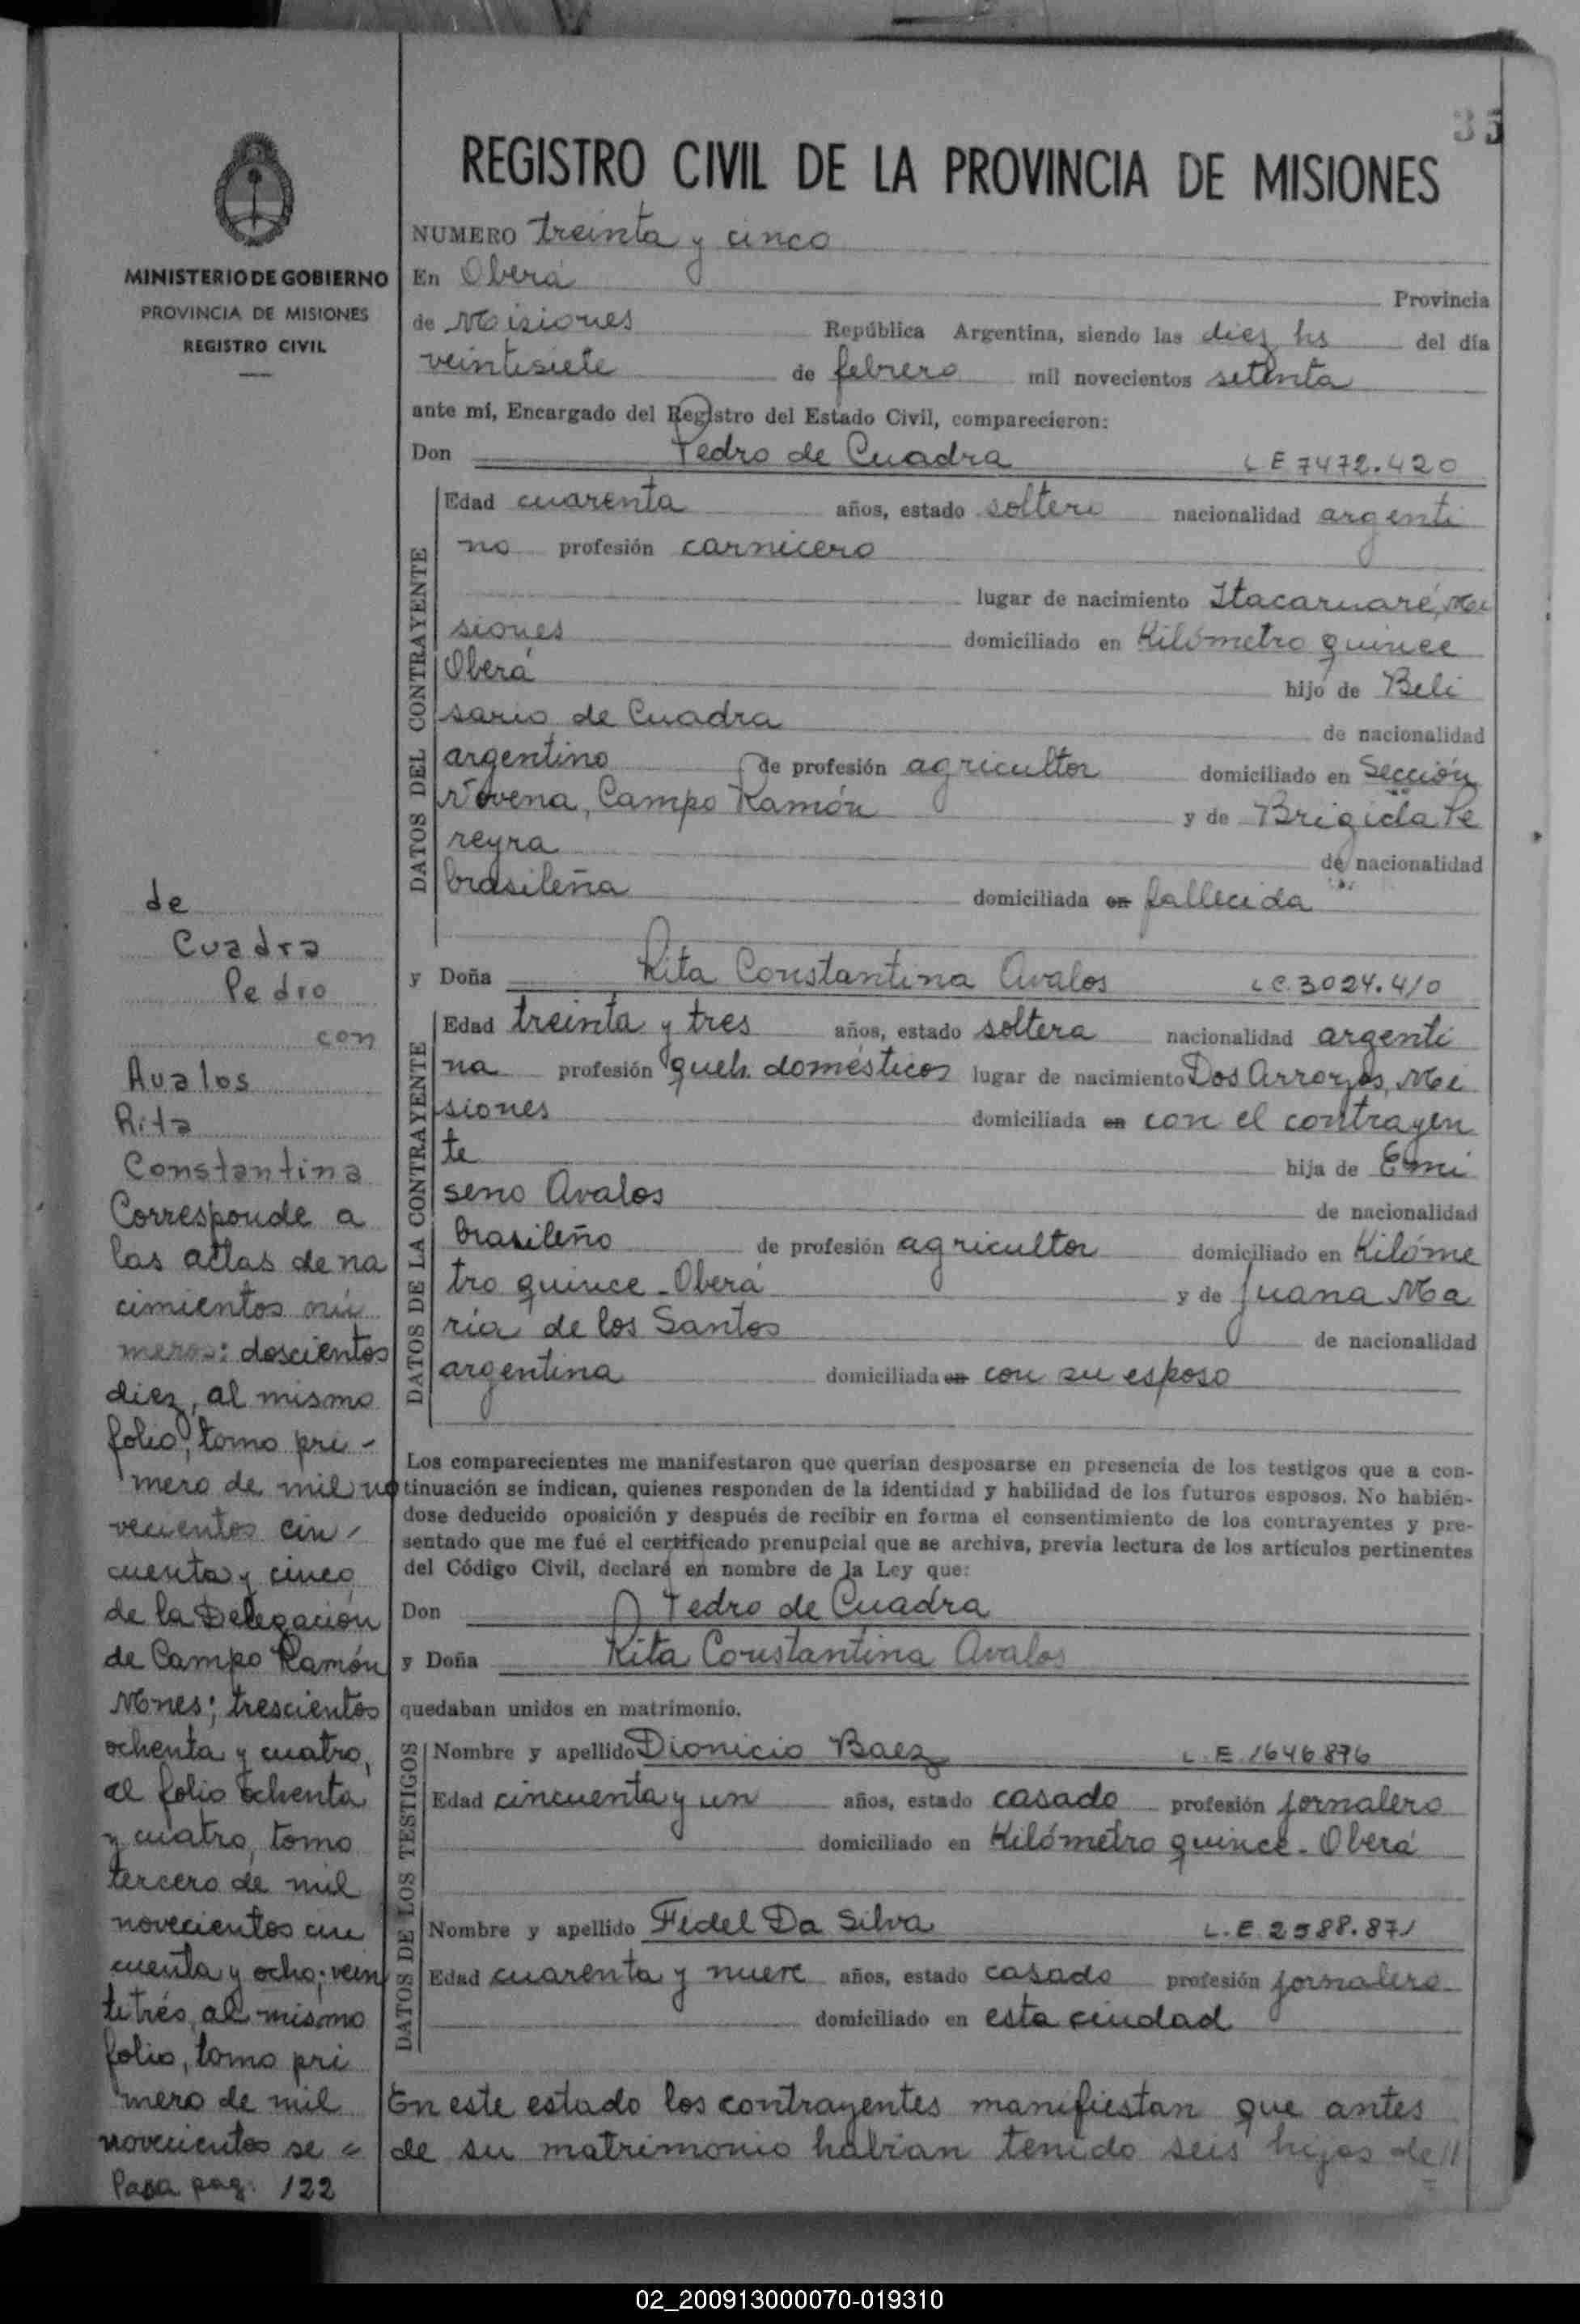 35
REGISTRO CIVIL DE LA PROVINCIA DE MISIONES
MINISTERIO DE GOBIERNO
PROVINCIA DE MISIONES
REGISTRO CIVIL
NUMERO treinta y cinco
En Oberá Provincia
de Misiones República Argentina, siendo las diez hs del día
veintisiete de febrero mil novecientos setenta
ante mí, Encargado del Registro del Estado Civil, comparecieron:
Don Pedro de Cuadra L E 7472.420
DATOS DEL CONTRAYENTE
Edad cuarenta años, estado soltero nacionalidad argenti
no profesión carnicero
lugar de nacimiento Itacaruaré, Mi
siones domiciliado en Kilómetro quince
Oberá hijo de Beli
sario de Cuadra de nacionalidad
argentino de profesión agricultor domiciliado en Sección
Novena, Campo Ramón y de Brigida Pe
reyra de nacionalidad
brasileña domiciliada en fallecida
y Doña Rita Constantina Avalos L C. 3024.410
DATOS DE LA CONTRAYENTE
Edad treinta y tres años, estado soltera nacionalidad argenti
na profesión queh. domésticos lugar de nacimiento Dos Arroyos, Mi
siones domiciliada en con el contrayen
te hija de Emi
seno Avalos de nacionalidad
brasileño de profesión agricultor domiciliado en Kilóme
tro quince - Oberá y de Juana Ma
ría de los Santos de nacionalidad
argentina domiciliada en con su esposo
Los comparecientes me manifestaron que querían desposarse en presencia de los testigos que a con-
tinuación se indican, quienes responden de la identidad y habilidad de los futuros esposos. No habién-
dose deducido oposición y después de recibir en forma el consentimiento de los contrayentes y pre-
sentado que me fué el certificado prenupcial que se archiva, previa lectura de los artículos pertinentes
del Código Civil, declaré en nombre de la Ley que:
Don Pedro de Cuadra
y Doña Rita Constantina Avalos
quedaban unidos en matrimonio.
DATOS DE LOS TESTIGOS
Nombre y apellido Dionicio Baez L. E. 1646876
Edad cincuenta y un años, estado casado profesión jornalero
domiciliado en Kilómetro quince - Oberá
Nombre y apellido Fidel Da Silva L. E. 2588.871
Edad cuarenta y nueve años, estado casado profesión jornalero
domiciliado en esta ciudad
En este estado los contrayentes manifiestan que antes
de su matrimonio habían tenido seis hijos de //
de
Cuadra
Pedro
con
Avalos
Rita
Constantina
Corresponde a
las actas de na
cimientos nú
meros: doscientos
diez, al mismo
folio, tomo pri -
mero de mil no
vecientos cin -
cuenta y cinco
de la Delegación
de Campo Ramón
Mnes; trescientos
ochenta y cuatro,
al folio ochenta
y cuatro, tomo
tercero de mil
novecientos cin
cuenta y ocho; vein
titrés, al mismo
folio, tomo pri
mero de mil
novecientos se
Pasa pag. 122
02_200913000070-019310